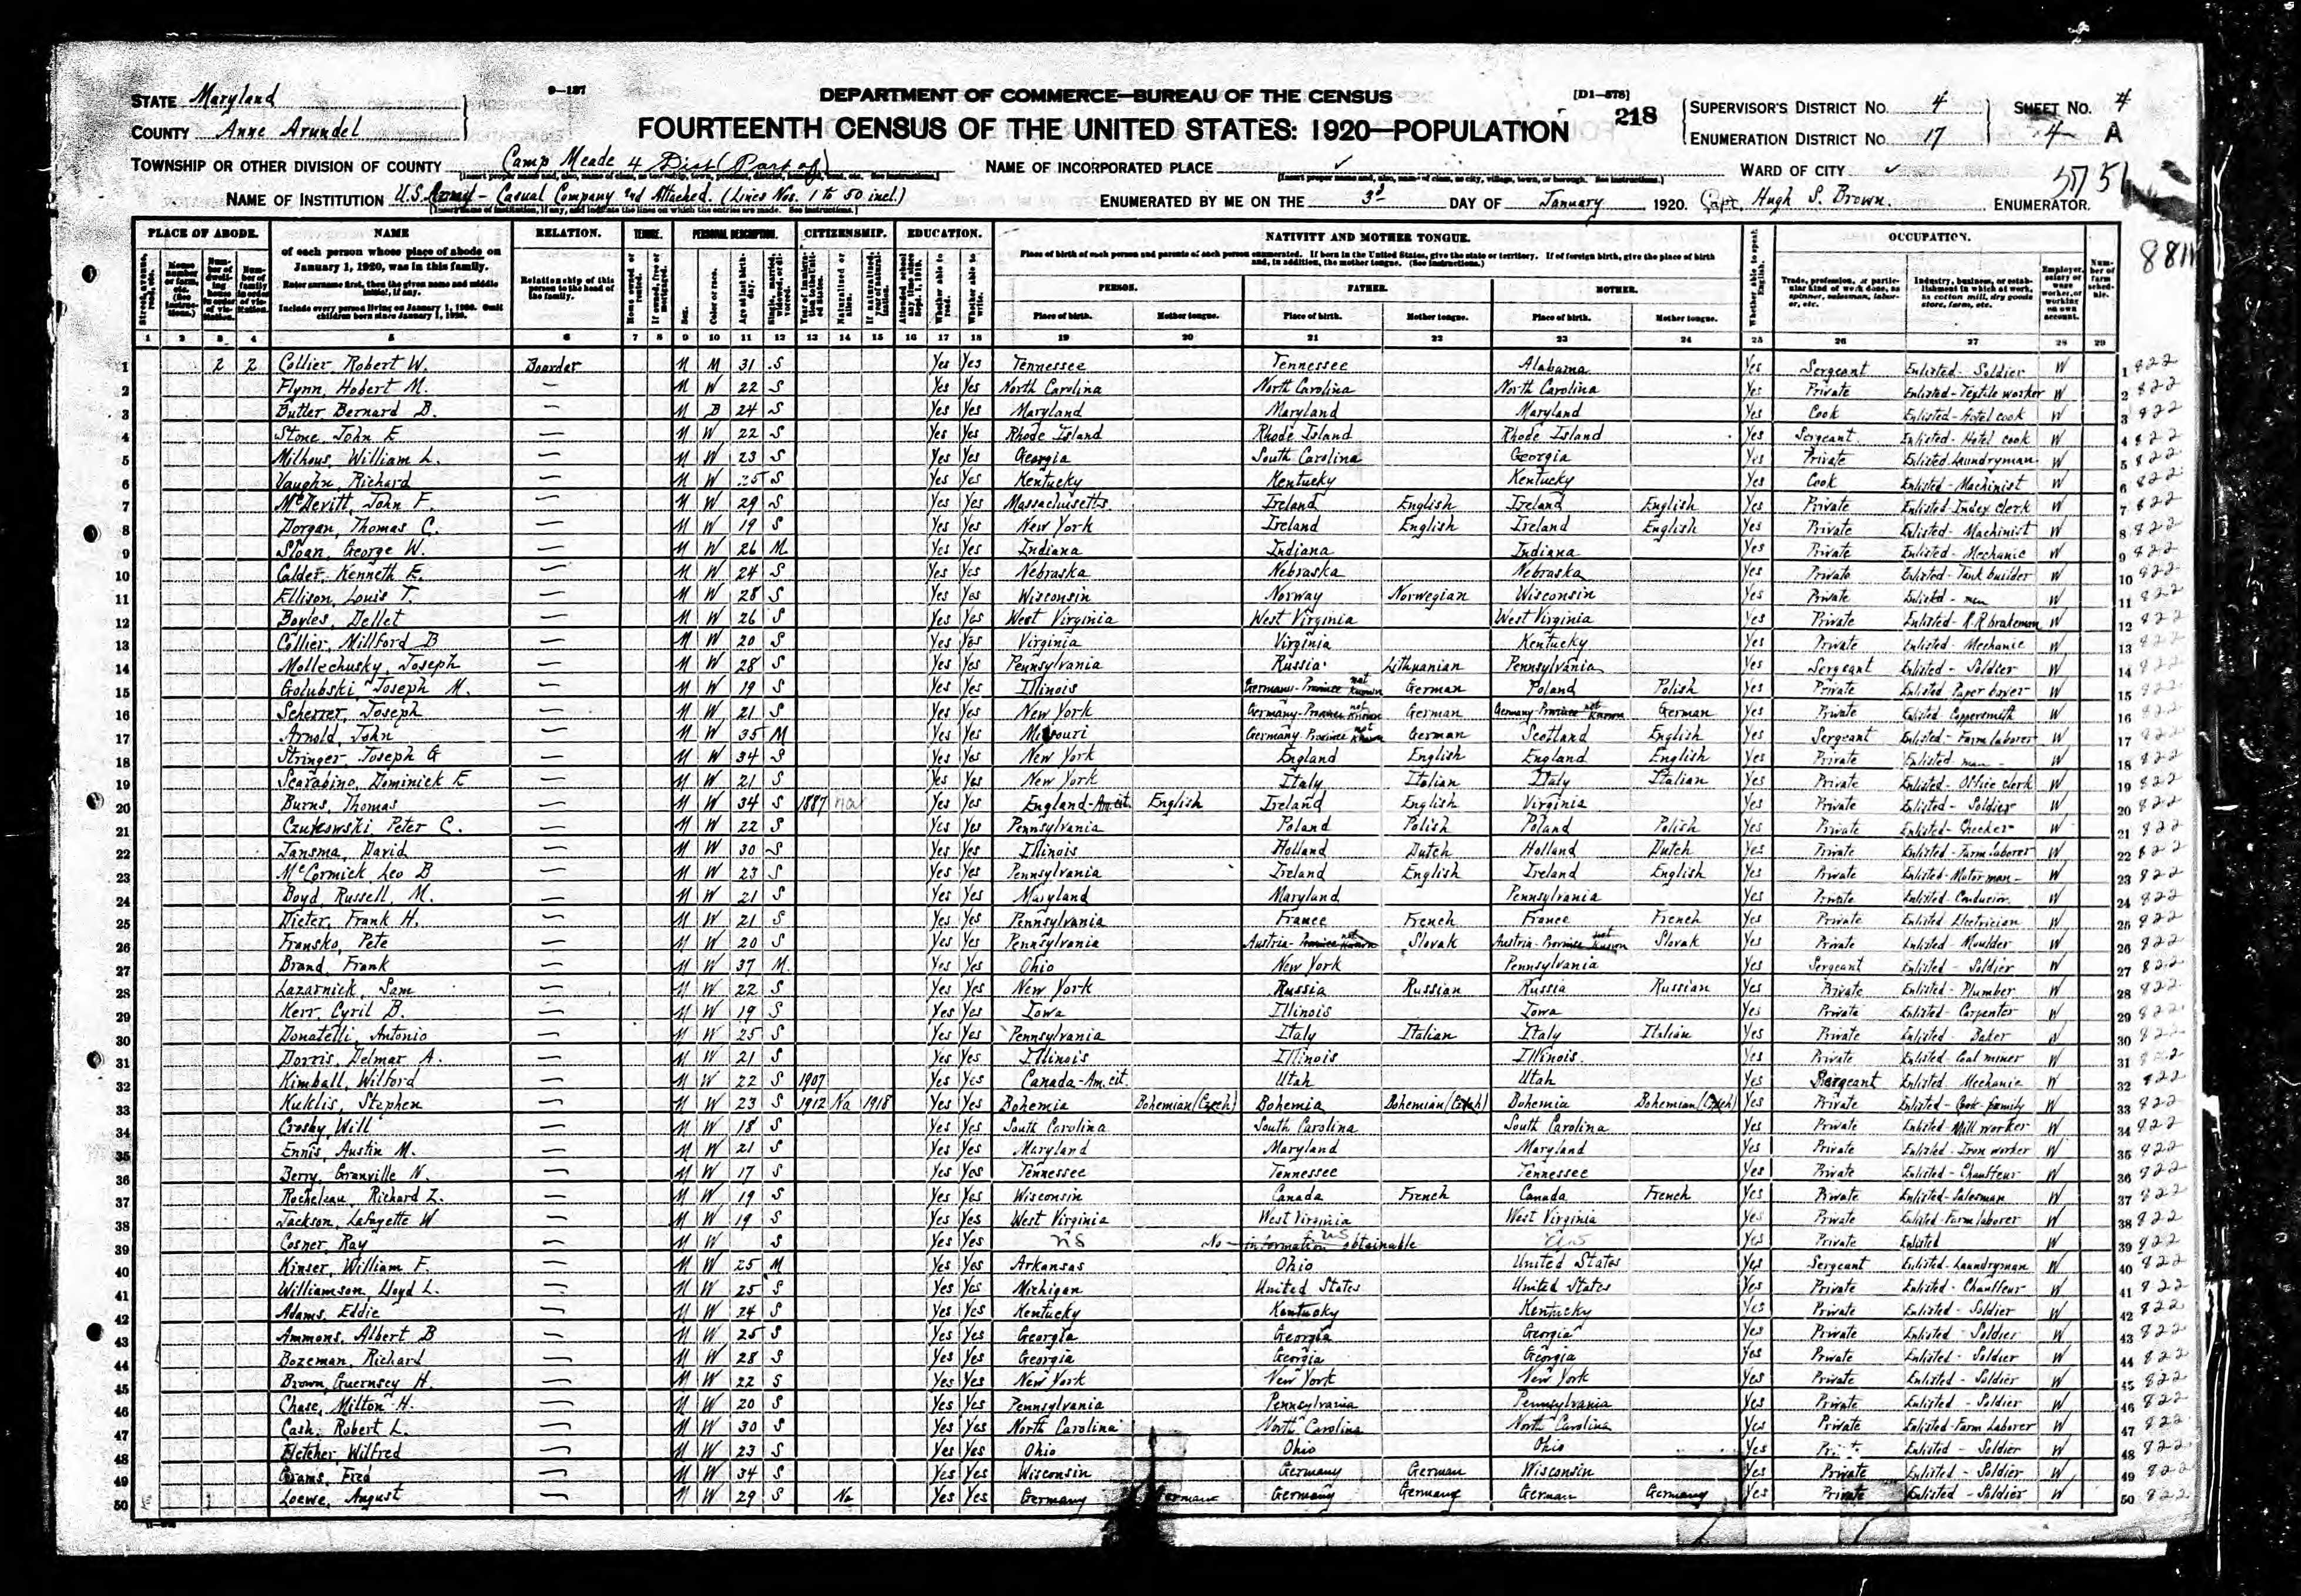 STATE Maryland
9-137
DEPARTMENT OF COMMERCE—BUREAU OF THE CENSUS
[D1-578]
SUPERVISOR'S DISTRICT NO. 4
SHEET NO. 4
COUNTY Anne Arundel
FOURTEENTH CENSUS OF THE UNITED STATES: 1920—POPULATION
218
ENUMERATION DISTRICT NO. 17
4 A
TOWNSHIP OR OTHER DIVISION OF COUNTY Camp Meade 4 Dist (Part of)
NAME OF INCORPORATED PLACE
WARD OF CITY
NAME OF INSTITUTION U.S. Army - Casual Company and Attached. (Lines Nos. 1 to 50 incl.)
ENUMERATED BY ME ON THE 3d DAY OF January 1920. Capt. Hugh S. Brown. ENUMERATOR.
PLACE OF ABODE. NAME RELATION. TENURE. PERSONAL DESCRIPTION. CITIZENSHIP. EDUCATION. NATIVITY AND MOTHER TONGUE. OCCUPATION.
of each person whose place of abode on January 1, 1920, was in this family.
Enter surname first, then the given name and middle initial, if any.
Include every person living on January 1, 1920. Omit children born since January 1, 1920.
Relationship of this person to the head of the family.
Place of birth of each person and parents of each person enumerated. If born in the United States, give the state or territory. If of foreign birth, give the place of birth and, in addition, the mother tongue. (See Instructions.)
PERSON. FATHER. MOTHER.
Place of birth. Mother tongue. Place of birth. Mother tongue. Place of birth. Mother tongue.
Whether able to speak English.
Trade, profession, or particular kind of work done, as spinner, salesman, laborer, etc.
Industry, business, or establishment in which at work, as cotton mill, dry goods store, farm, etc.
Employer, salary or wage worker, or working on own account.
Number of farm schedule.
1 2 3 4 5 6 7 8 9 10 11 12 13 14 15 16 17 18 19 20 21 22 23 24 25 26 27 28 29
1 2 2 Collier, Robert W. Boarder M M 31 S Yes Yes Tennessee Tennessee Alabama Yes Sergeant Enlisted - Soldier W 1 822
2 Flynn, Hobert M. — M W 22 S Yes Yes North Carolina North Carolina North Carolina Yes Private Enlisted - Textile worker W 2 822
3 Butler Bernard B. — M B 24 S Yes Yes Maryland Maryland Maryland Yes Cook Enlisted - Hotel cook W 3 822
4 Stone, John E — M W 22 S Yes Yes Rhode Island Rhode Island Rhode Island Yes Sergeant Enlisted - Hotel cook W 4 822
5 Milhous, William L. — M W 23 S Yes Yes Georgia South Carolina Georgia Yes Private Enlisted Laundryman W 5 822
6 Vaughn, Richard — M W 25 S Yes Yes Kentucky Kentucky Kentucky Yes Cook Enlisted - Machinist W 6 822
7 McDevitt, John F. — M W 29 S Yes Yes Massachusetts Ireland English Ireland English Yes Private Enlisted Index Clerk W 7 822
8 Dorgan, Thomas C. — M W 19 S Yes Yes New York Ireland English Ireland English Yes Private Enlisted - Machinist W 8 822
9 Sloan, George W. — M W 26 M Yes Yes Indiana Indiana Indiana Yes Private Enlisted - Mechanic W 9 822
10 Calder, Kenneth E. — M W 24 S Yes Yes Nebraska Nebraska Nebraska Yes Private Enlisted - Tank builder W 10 822
11 Ellison, Louis T. — M W 28 S Yes Yes Wisconsin Norway Norwegian Wisconsin Yes Private Enlisted - man W 11 822
12 Boyles, Dellet — M W 26 S Yes Yes West Virginia West Virginia West Virginia Yes Private Enlisted - R.R brakeman W 12 822
13 Collier, Millford B — M W 20 S Yes Yes Virginia Virginia Kentucky Yes Private Enlisted - Mechanic W 13 822
14 Mollechusky, Joseph — M W 28 S Yes Yes Pennsylvania Russia Lithuanian Pennsylvania Yes Sergeant Enlisted - Soldier W 14 822
15 Golubski Joseph M. — M W 19 S Yes Yes Illinois Germany - Province not known German Poland Polish Yes Private Enlisted Paper W 15 822
16 Scherrer, Joseph — M W 21 S Yes Yes New York Germany - Province not known German Germany Province not known German Yes Private Enlisted Coppersmith W 16 822
17 Arnold, John — M W 35 M Yes Yes Missouri Germany Province not known German Scotland English Yes Sergeant Enlisted - Farm laborer W 17 822
18 Stringer, Joseph G — M W 34 S Yes Yes New York England English England English Yes Private Enlisted man - W 18 822
19 Scarabino, Dominick E — M W 21 S Yes Yes New York Italy Italian Italy Italian Yes Private Enlisted - Office clerk W 19 822
20 Burns, Thomas — M W 34 S 1887 na Yes Yes England - Am cit. English Ireland English Virginia Yes Private Enlisted - Soldier W 20 822
21 Czukowski, Peter C. — M W 22 S Yes Yes Pennsylvania Poland Polish Poland Polish Yes Private Enlisted - Checker W 21 822
22 Jansma, David — M W 30 S Yes Yes Illinois Holland Dutch Holland Dutch Yes Private Enlisted - Farm laborer W 22 822
23 McCormick, Leo B — M W 23 S Yes Yes Pennsylvania Ireland English Ireland English Yes Private Enlisted - Motorman - W 23 822
24 Boyd, Russell, M. — M W 21 S Yes Yes Maryland Maryland Pennsylvania Yes Private Enlisted - Conductor W 24 822
25 Dieter, Frank H. — M W 21 S Yes Yes Pennsylvania France French France French Yes Private Enlisted Electrician W 25 822
26 Fransko, Pete — M W 20 S Yes Yes Pennsylvania Austria - Province not known Slovak Austria - Province not known Slovak Yes Private Enlisted - Moulder W 26 822
27 Brand, Frank — M W 37 M. Yes Yes Ohio New York Pennsylvania Yes Sergeant Enlisted - Soldier W 27 822
28 Lazarnick, Sam — M W 22 S Yes Yes New York Russia Russian Russia Russian Yes Private Enlisted - Plumber W 28 822
29 Kerr, Cyril B. — M W 19 S Yes Yes Iowa Illinois Iowa Yes Private Enlisted - Carpenter W 29 822
30 Donatelli, Antonio — M W 25 S Yes Yes Pennsylvania Italy Italian Italy Italian Yes Private Enlisted - Baker W 30 822
31 Dorris, Delmar A. — M W 21 S Yes Yes Illinois Illinois Illinois. Yes Private Enlisted - Coal miner W 31 822
32 Kimball, Wilford — M W 22 S 1907 Yes Yes Canada - Am. cit. Utah Utah Yes Sergeant Enlisted - Mechanic W 32 822
33 Kuklis, Stephen — M W 23 S 1912 Na 1918 Yes Yes Bohemia Bohemian (Czech) Bohemia Bohemian (Czech) Bohemia Bohemian (Czech) Yes Private Enlisted - Cook family W 33 822
34 Crosby, Will — M W 18 S Yes Yes South Carolina South Carolina South Carolina Yes Private Enlisted - Mill worker W 34 822
35 Ennis, Austin M. — M W 21 S Yes Yes Maryland Maryland Maryland Yes Private Enlisted - Iron worker W 35 822
36 Berry, Granville N. — M W 17 S Yes Yes Tennessee Tennessee Tennessee Yes Private Enlisted - Chauffeur W 36 822
37 Rocheleau, Richard Z. — M W 19 S Yes Yes Wisconsin Canada French Canada French Yes Private Enlisted - Salesman W 37 822
38 Jackson, Lafayette W — M W 19 S Yes Yes West Virginia West Virginia West Virginia Yes Private Enlisted - Farm laborer W 38 822
39 Cosner, Ray — M W S Yes Yes US No information obtainable US US Yes Private Enlisted W 39 822
40 Kinser, William F. — M W 25 M Yes Yes Arkansas Ohio United States Yes Sergeant Enlisted - Laundryman W 40 822
41 Williamson, Lloyd L. — M W 25 S Yes Yes Michigan United States United States Yes Private Enlisted - Chauffeur W 41 822
42 Adams, Eddie — M W 24 S Yes Yes Kentucky Kentucky Kentucky Yes Private Enlisted - Soldier W 42 822
43 Ammons, Albert B — M W 25 S Yes Yes Georgia Georgia Georgia Yes Private Enlisted - Soldier W 43 822
44 Bozeman, Richard — M W 28 S Yes Yes Georgia Georgia Georgia Yes Private Enlisted - Soldier W 44 822
45 Brown, Guernsey H. — M W 22 S Yes Yes New York New York New York Yes Private Enlisted - Soldier W 45 822
46 Chase, Milton H. — M W 20 S Yes Yes Pennsylvania Pennsylvania Pennsylvania Yes Private Enlisted - Soldier W 46 822
47 Cash, Robert L. — M W 30 S Yes Yes North Carolina North Carolina North Carolina Yes Private Enlisted - Farm Laborer W 47 822
48 Fletcher, Wilfred — M W 23 S Yes Yes Ohio Ohio Ohio Yes Enlisted - Soldier W 48 822
49 Grams, Fred — M W 34 S Yes Yes Wisconsin Germany German Wisconsin Yes Private Enlisted - Soldier W 49 822
50 Loewe, August — M W 29 S Na Yes Yes Germany German Germany Germany German Germany Yes Private Enlisted - Soldier W 50 822